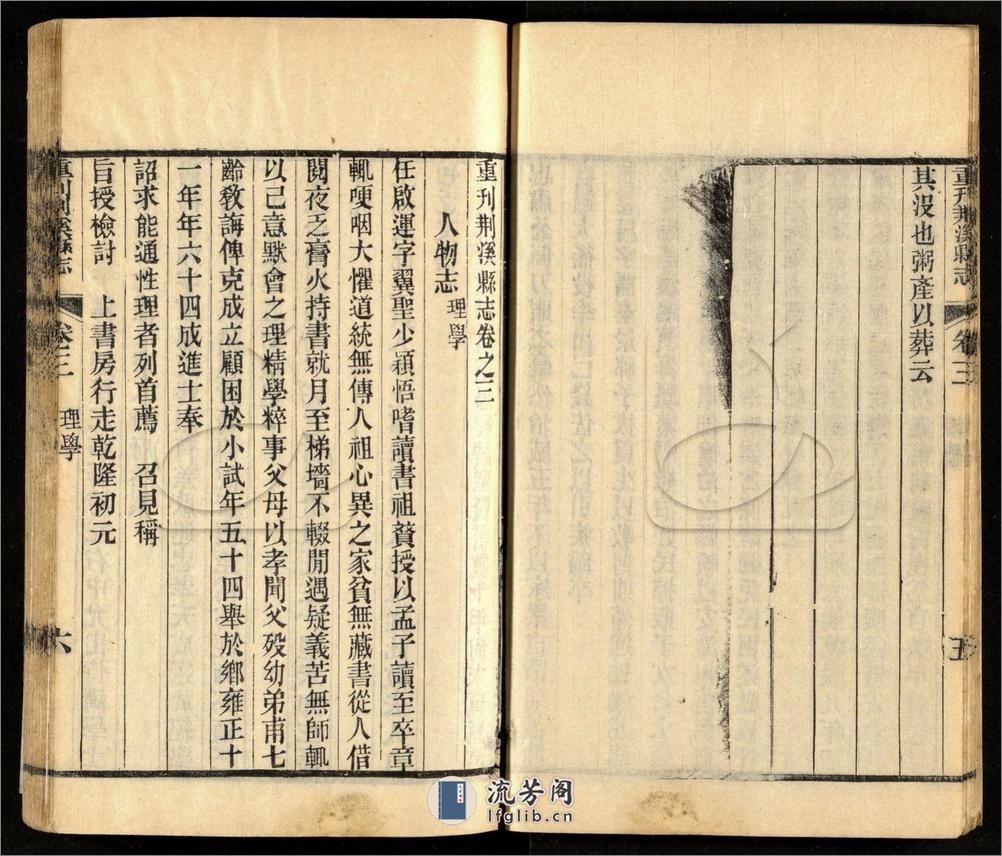 重刋荆溪縣志
卷三
五
其没也粥產以葬云
重刋荆溪縣志卷之三
人物志 理學
任啟運字翼聖少穎悟嗜讀書祖蕡授以孟子讀至卒章
輒哽咽大懼道統無傳人祖心異之家貧無藏書從人借
閱夜乏膏火持書就月至梯墻不輟閒遇疑義苦無師輒
以己意默會之理精學粹事父母以孝聞父歿幼弟甫七
齡教誨俾克成立顧困於小試年五十四舉於鄉雍正十
一年年六十四成進士奉
詔求能通性理者列首薦 召見稱
旨授檢討 上書房行走乾隆初元
重刋荆溪縣志
卷三 理學
六
流芳阁
lfglib.cn